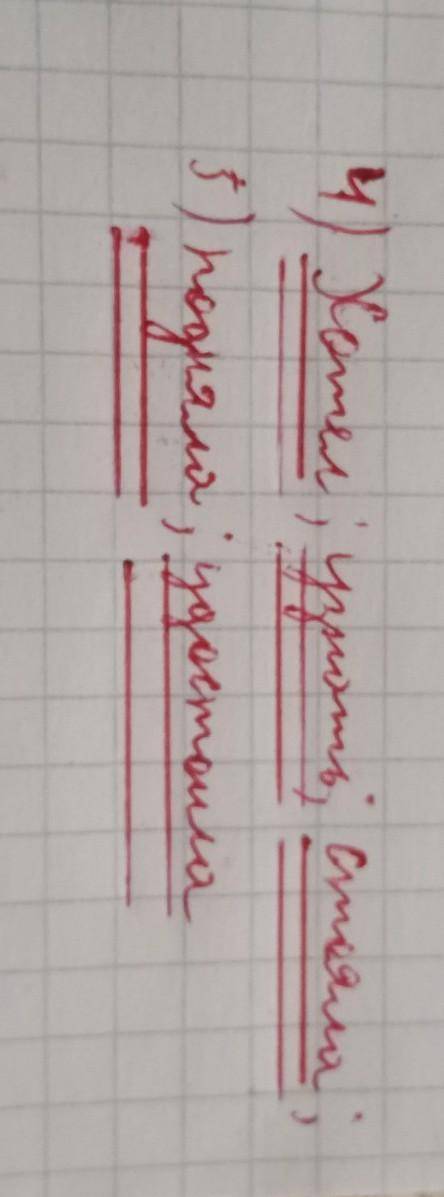 4) Хотел; узнать; стояла;
5) подняла; удостоила